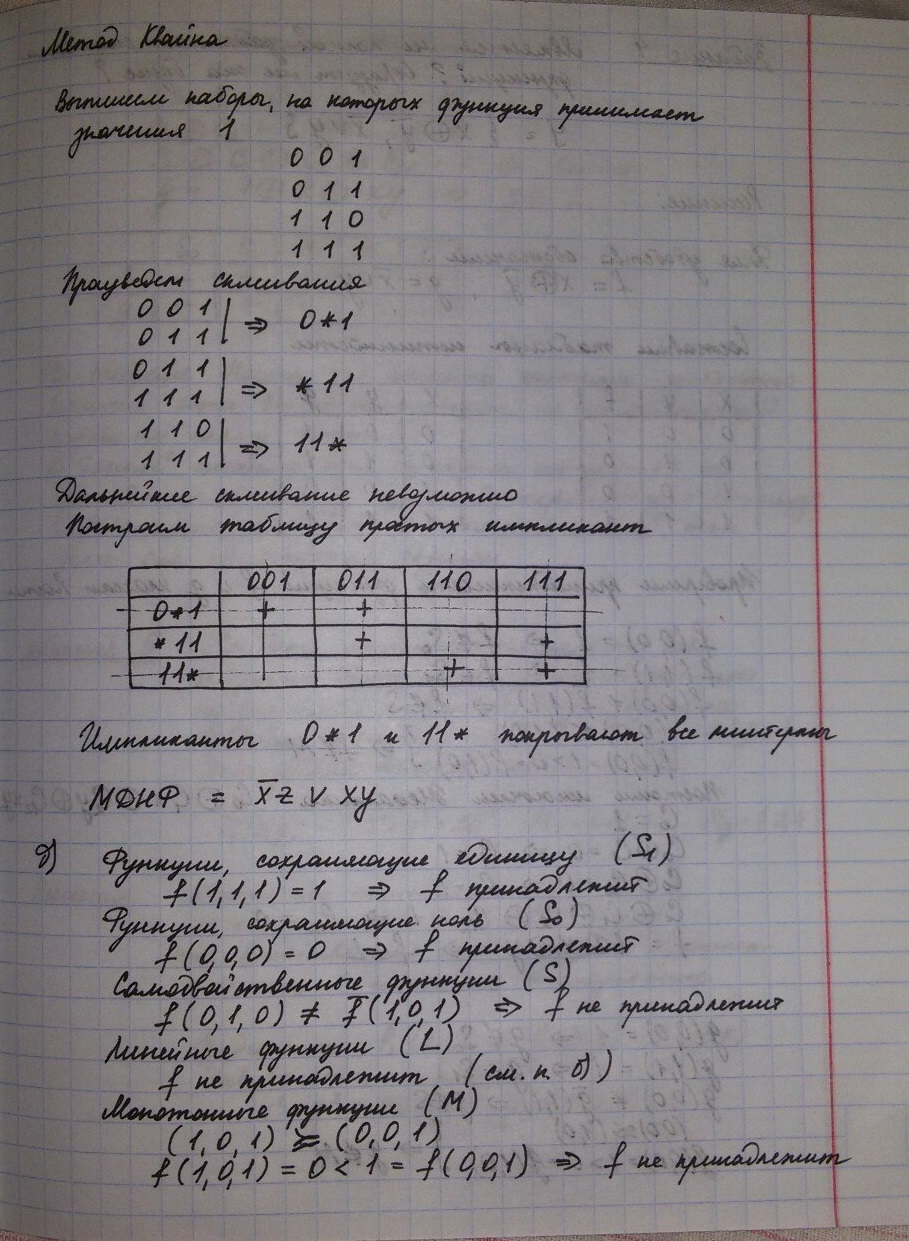 Метод Квайна
Выпишем наборы, на которых функция принимает
значения 1
0 0 1
0 1 1
1 1 0
1 1 1
Произведем склеивания
0 0 1
0 1 1 ⇒ 0*1
0 1 1
1 1 1 ⇒ *11
1 1 0
1 1 1 ⇒ 11*
Дальнейшие склеивание невозможно
Построим таблицу простых импликант
001 011 110 111
0*1 + +
*11 + +
11* + +
Импликанты 0*1 и 11* покрывают все минтермы
МДНФ = x̅z ∨ xy
д) Функции, сохраняющие единицу (S₁)
f(1,1,1) = 1 ⇒ f принадлежит
Функции, сохраняющие ноль (S₀)
f(0,0,0) = 0 ⇒ f принадлежит
Самодвойственные функции (S)
f(0,1,0) ≠ f̅(1,0,1) ⇒ f не принадлежит
Линейные функции (L)
f не принадлежит (см. п. б))
Монотонные функции (M)
(1,0,1) ≽ (0,0,1)
f(1,0,1) = 0 < 1 = f(0,0,1) ⇒ f не принадлежит